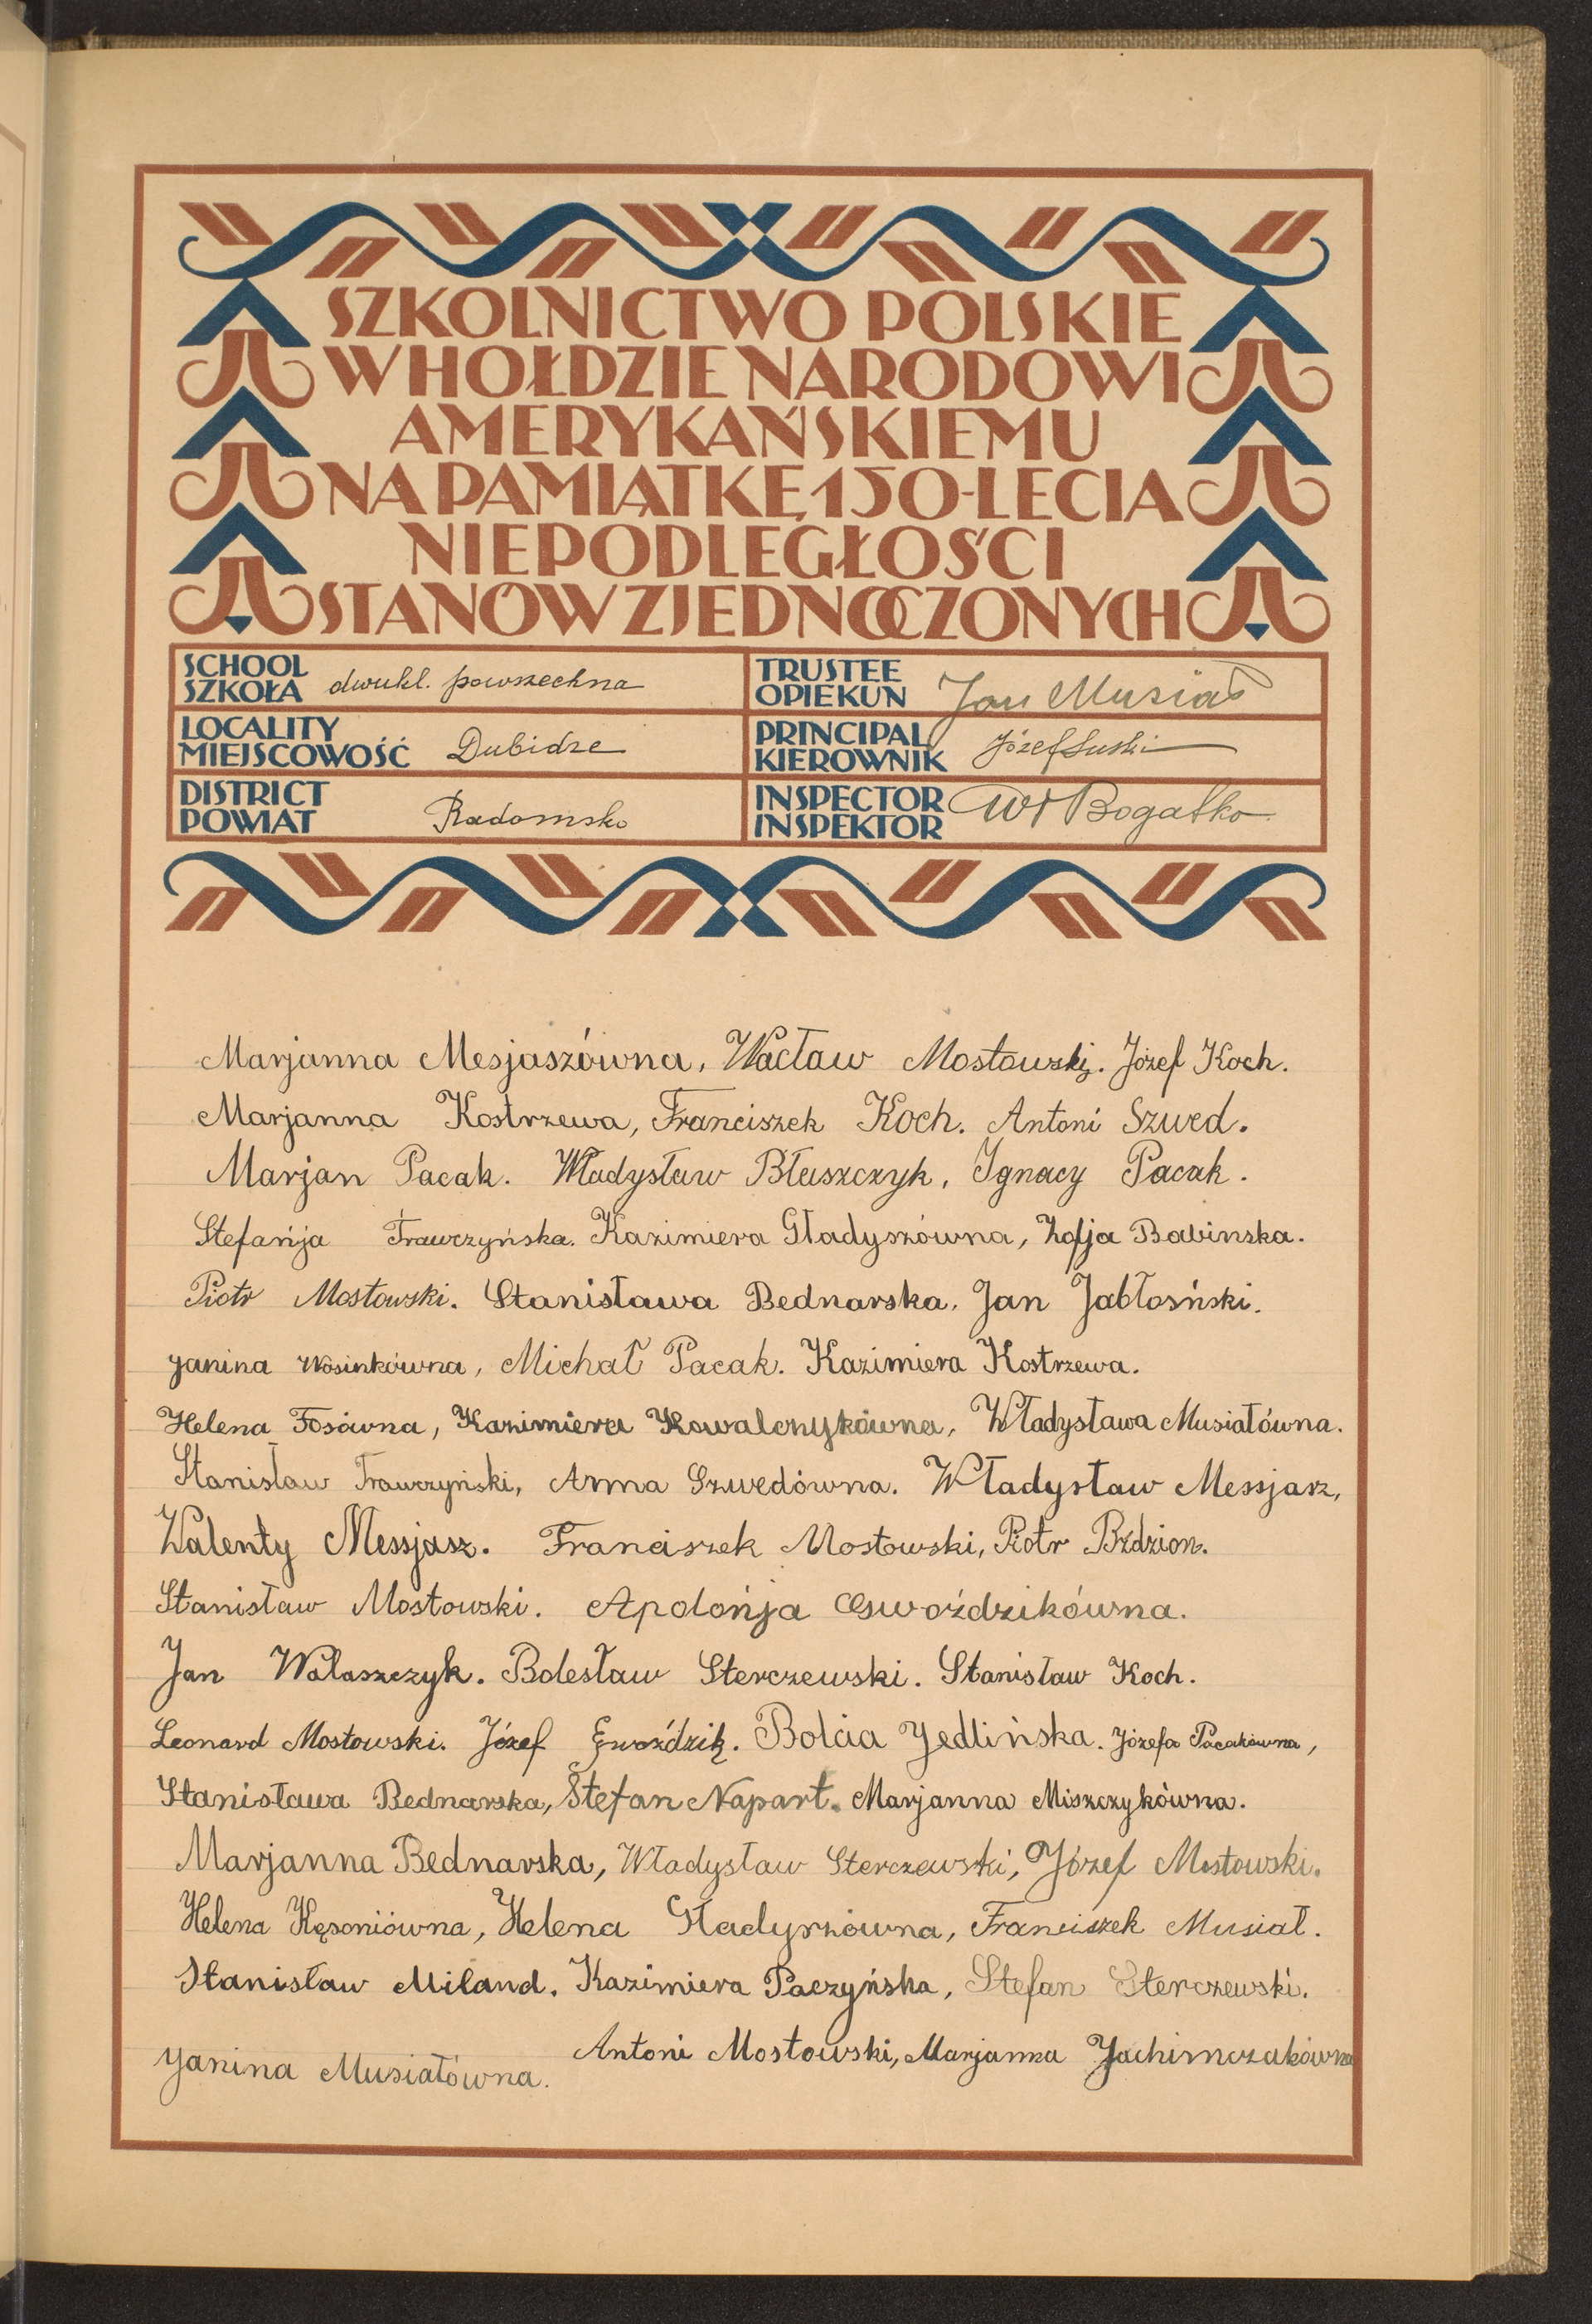 SZKOLNICTWO POLSKIE
W HOŁDZIE NARODOWI
AMERYKAŃSKIEMU
NA PAMIĄTKĘ 150-LECIA
NIEPODLEGŁOŚCI
STANÓW ZJEDNOCZONYCH
SCHOOL
SZKOŁA dwukl. powszechna
TRUSTEE
OPIEKUN Jan Musiał
LOCALITY
MIEJSCOWOŚĆ Dubidze
PRINCIPAL
KIEROWNIK Józef Suski
DISTRICT
POWIAT Radomsko
INSPECTOR
INSPEKTOR Wł Bogatko
Marjanna Mesjaszówna, Wacław Mostowski. Józef Koch.
Marjanna Kostrzewa, Franciszek Koch. Antoni Szwed.
Marjan Pacak. Władysław Błaszczyk, Ignacy Pacak.
Stefańja Trawczyńska. Kazimiera Gładyszówna, Zofja Babinska.
Piotr Mostowski. Stanisława Bednarska, Jan Jabłosński.
Janina Wosinkówna, Michał Pacak. Kazimiera Kostrzewa.
Helena Fosówna, Kazimiera Kowalczykówna, Władysława Musiałówna.
Stanisław Trawczyński, Anna Szwedówna. Władysław Messjasz,
Walenty Messjasz. Franciszek Mostowski, Piotr Bździon.
Stanisław Mostowski. Apolońja Gwoździkówna.
Jan Walaszczyk. Bolesław Sterczewski. Stanisław Koch.
Leonard Mostowski. Józef Gwoździk. Bolcia Jedlińska. Józefa Pacakówna,
Stanisława Bednarska, Stefan Napart. Marjanna Miszczykówna.
Marjanna Bednarska, Władysław Sterczewski, Józef Mostowski.
Helena Kęsoniówna, Helena Gładyszówna, Franciszek Musiał.
Stanisław Miland. Kazimiera Paczyńska, Stefan Sterczewski.
Janina Musiałówna. Antoni Mostowski, Marjanna Jachimczakówna